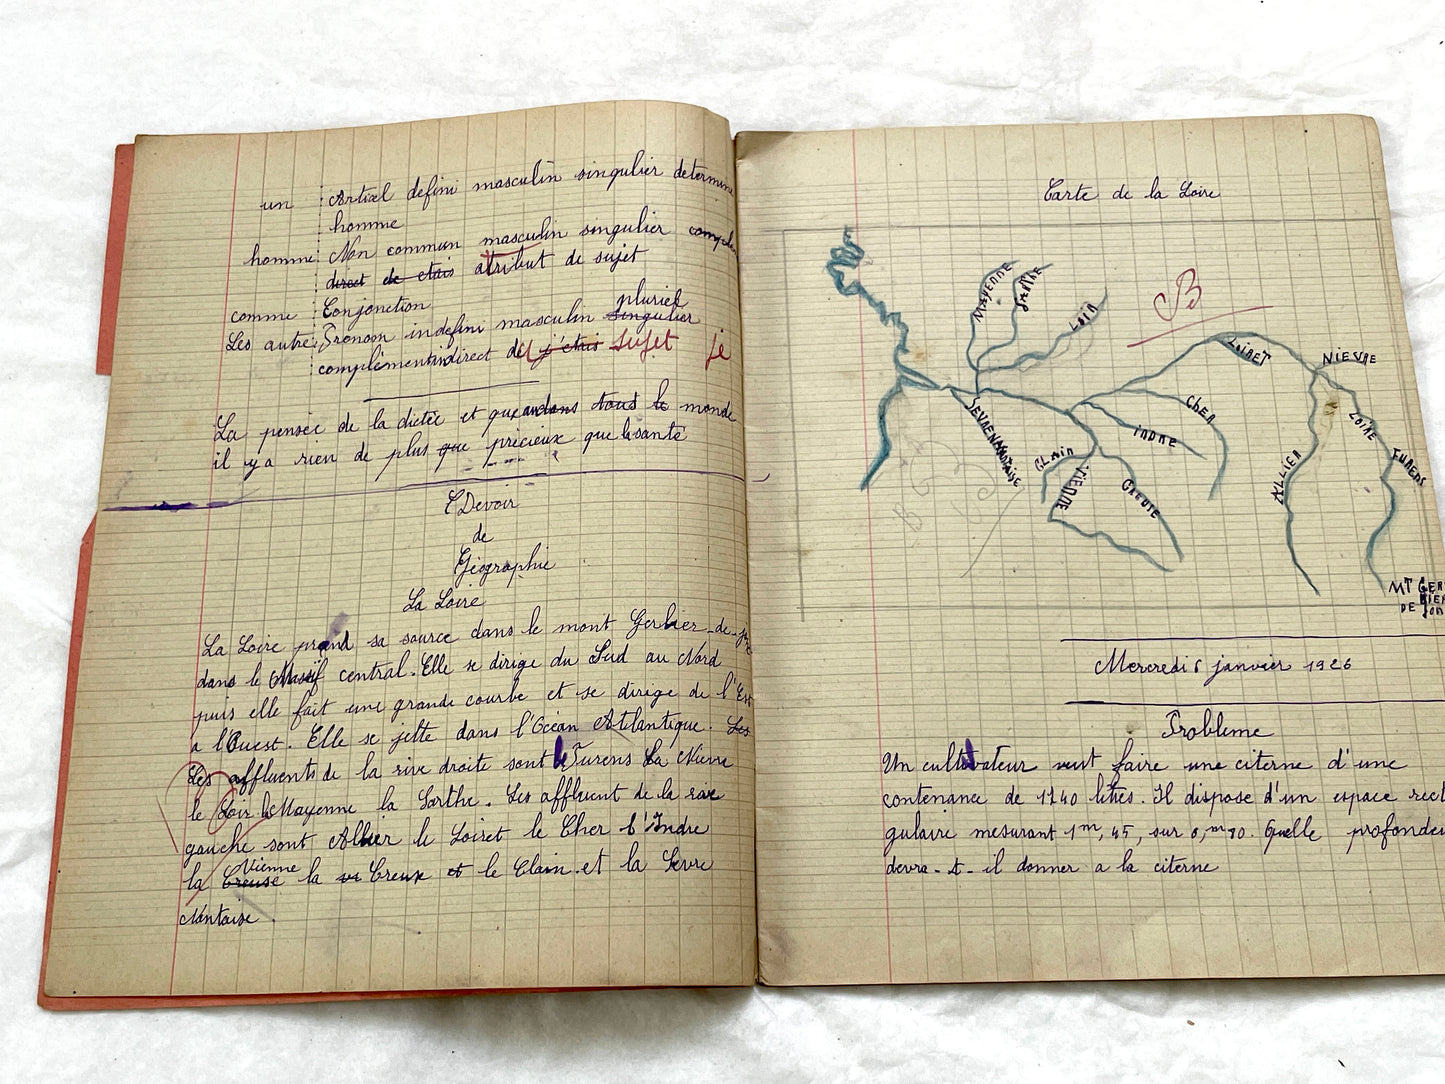 un Articl defini masculin singulier determine
homme
homme Non commun masculin singulier
direct de etais atribut de sujet
comme Conjonction
pluriel
Les autre Pronom indefini masculin singulier
complément indirect de j'etais sujet je
La pensée de la dictée et que dans tout le monde
il y a rien de plus que précieux que la santé
Devoir
de
Géographie
La Loire
La Loire prend sa source dans le mont Gerbier-de-
dans le Massif central. Elle se dirige du Sud au Nord
puis elle fait une grande courbe et se dirige de l'Est
a l'Ouest. Elle se jette dans l'Océan Atlantique. Les
Les affluents de la rive droite sont le Furens La Nievre
le Loir la Mayenne la Sarthe. Les affluent de la rive
gauche sont Allier le Loiret le Cher l'Indre
Vienne
la Creuse la vi Creuse et le Clain et la Sevre
Nantaise
Carte de la Loire
B
MAYENNE
SARTHE
LOIR
LOIRET
NIEVRE
CHER
INDRE
SEVRE NANTAISE
CLAIN
VIENNE
CREUSE
ALLIER
LOIRE
FURENS
MT GER
BIER
DE JON
Mercredi 6 janvier 1926
Probleme
Un cultivateur veut faire une citerne d'une
contenance de 1740 litres. Il dispose d'un espace rect
gulaire mesurant 1m,45, sur 0,m90. Quelle profondeu
devra-t-il donner a la citerne